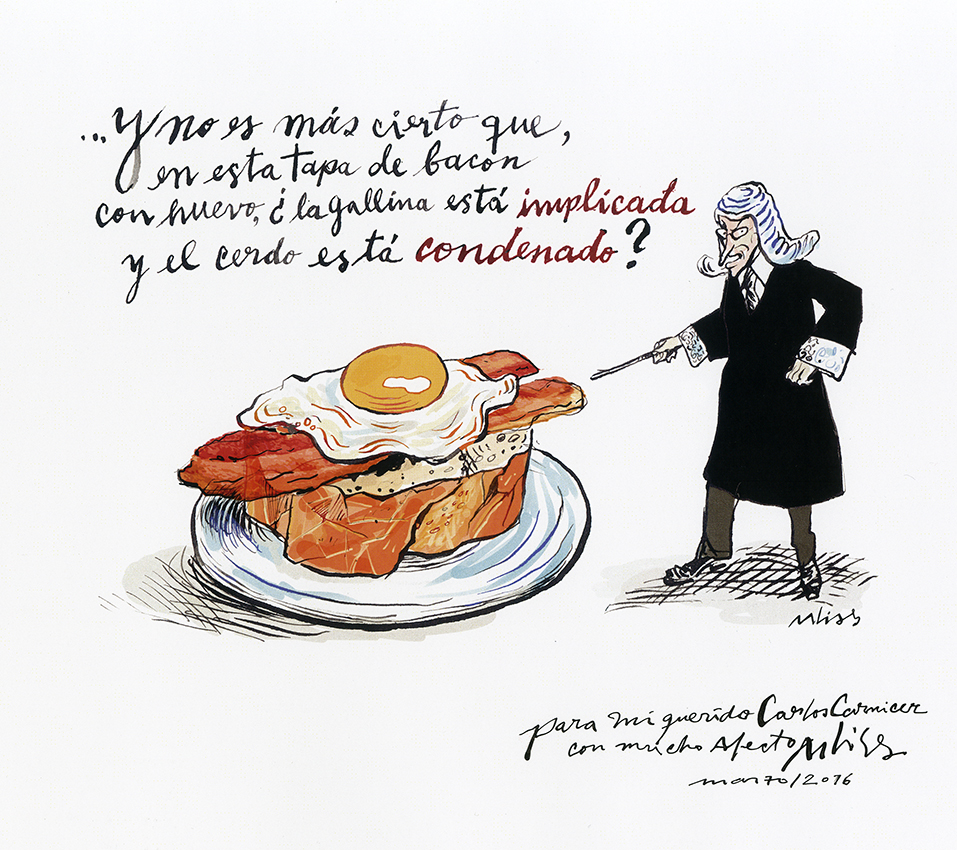 ...Y no es más cierto que,
en esta tapa de bacon
con huevo, ¿la gallina está implicada
y el cerdo está condenado?
Uliss
para mi querido Carlos Carnicer
con mucho afecto Uliss
marzo/2016